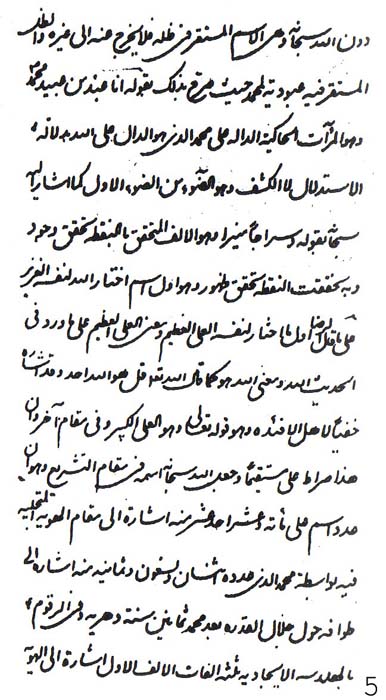 دون الله سبحانه وهی الاسم المستقر فی ظله فلا یخرج عنه الی غیره والظل
المستقر فیه عبودیته لمحمد حیث صرح بذلک بقوله انا عبد من عبید محمد
وهو المرآت الحاکیة الدالة علی محمد الذی هو الدال علی الله بدلالة
الاستدلال لا الکشف وهو الضوء من الضوء الاول کما اشار الیه
سبحانه بقوله وسراجاً منیرا وهو الالف المتحقق بالنقطة تحقق وجود
وبه تحققت النقطة تحقق ظهور وهو اول اسم اختار الله لنفسه
علی ما قال الرضا اول ما اختار لنفسه العلی العظیم ومعنی العلی العظیم علی ما ورد فی
الحدیث الله ومعنی الله هو کما قال الله تعالی قل هو الله احد وقد اشار
خفیاً لاهل الافئدة وهو قوله تعالی وهو العلی الکبیر وفی مقام آخر وان
هذا صراط علی مستقیماً وجعل الله سبحانه اسمه فی مقام التشریع وهو ان
عدد اسم علی مائة وعشر احد عشر منه اشارة الی مقام الهویة
فیه بواسطة محمد الذی عدده اثنان وتسعون وثمانیة منه اشارة الی
طوافه حول جلال القدرة بعد محمد ثمانین سنة وفی الرقوم
الایجادیة ثلثة الفات الالف الاول اشارة الی الهویة
5